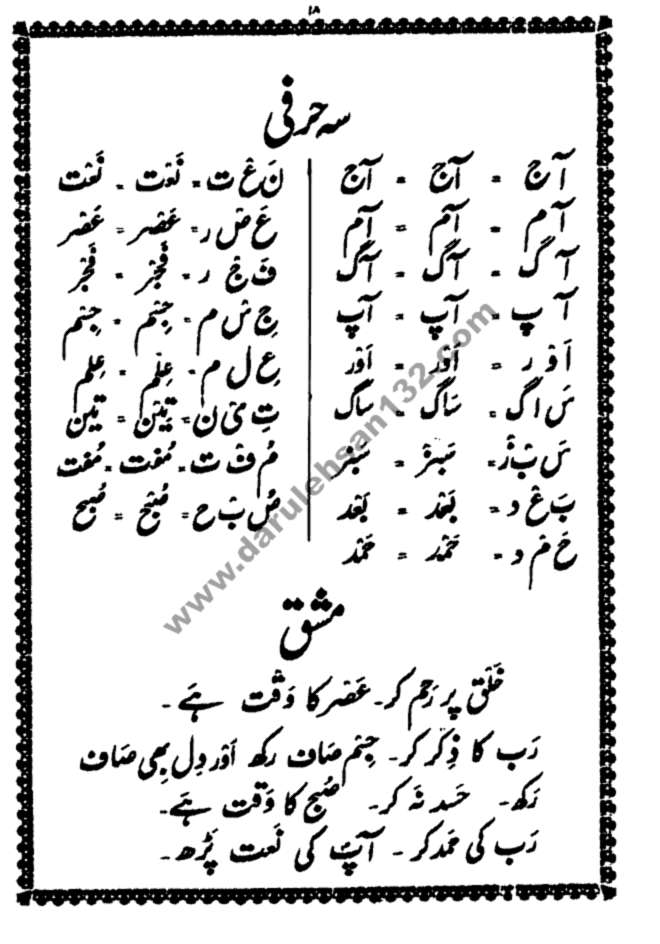 ۱۸
سہ حرفی
آ ج = آج = آج
آ م = آم = آم
آ گ = آگ = آگ
آ پ = آپ = آپ
اَ وْ ر = اَوْر = اَوْر
سَ ا گ = سَاگ = سَاگ
سَ بْ زْ = سَبْزْ = سَبْز
بَ عْ د = بَعْد = بَعْد
حَ مْ د = حَمْد = حَمْد
نَ عْ ت = نَعْت = نَعْت
عَ صْ ر = عَصْر = عَصْر
فَ جْ ر = فَجْر = فَجْر
جِ سْ م = جِسْم = جِسْم
عِ لْ م = عِلْم = عِلْم
تِ یْ ن = تِیْن = تِیْن
مُ فْ ت = مُفْت = مُفْت
صُ بْ ح = صُبْح = صُبْح
مشق
خَلْق پر رَحم کر۔ عَصْر کا وَقْت ہے۔
رَب کا ذِکْر کر۔ جِسْم صَاف رکھ اَوْر دِل بھی صَاف
رَکھ۔ حَسد نَہ کر۔ صُبْح کا وَقْت ہے۔
رَب کی حَمد کر۔ آپؐ کی نَعت پَڑھ۔
www.darulehsan132.com